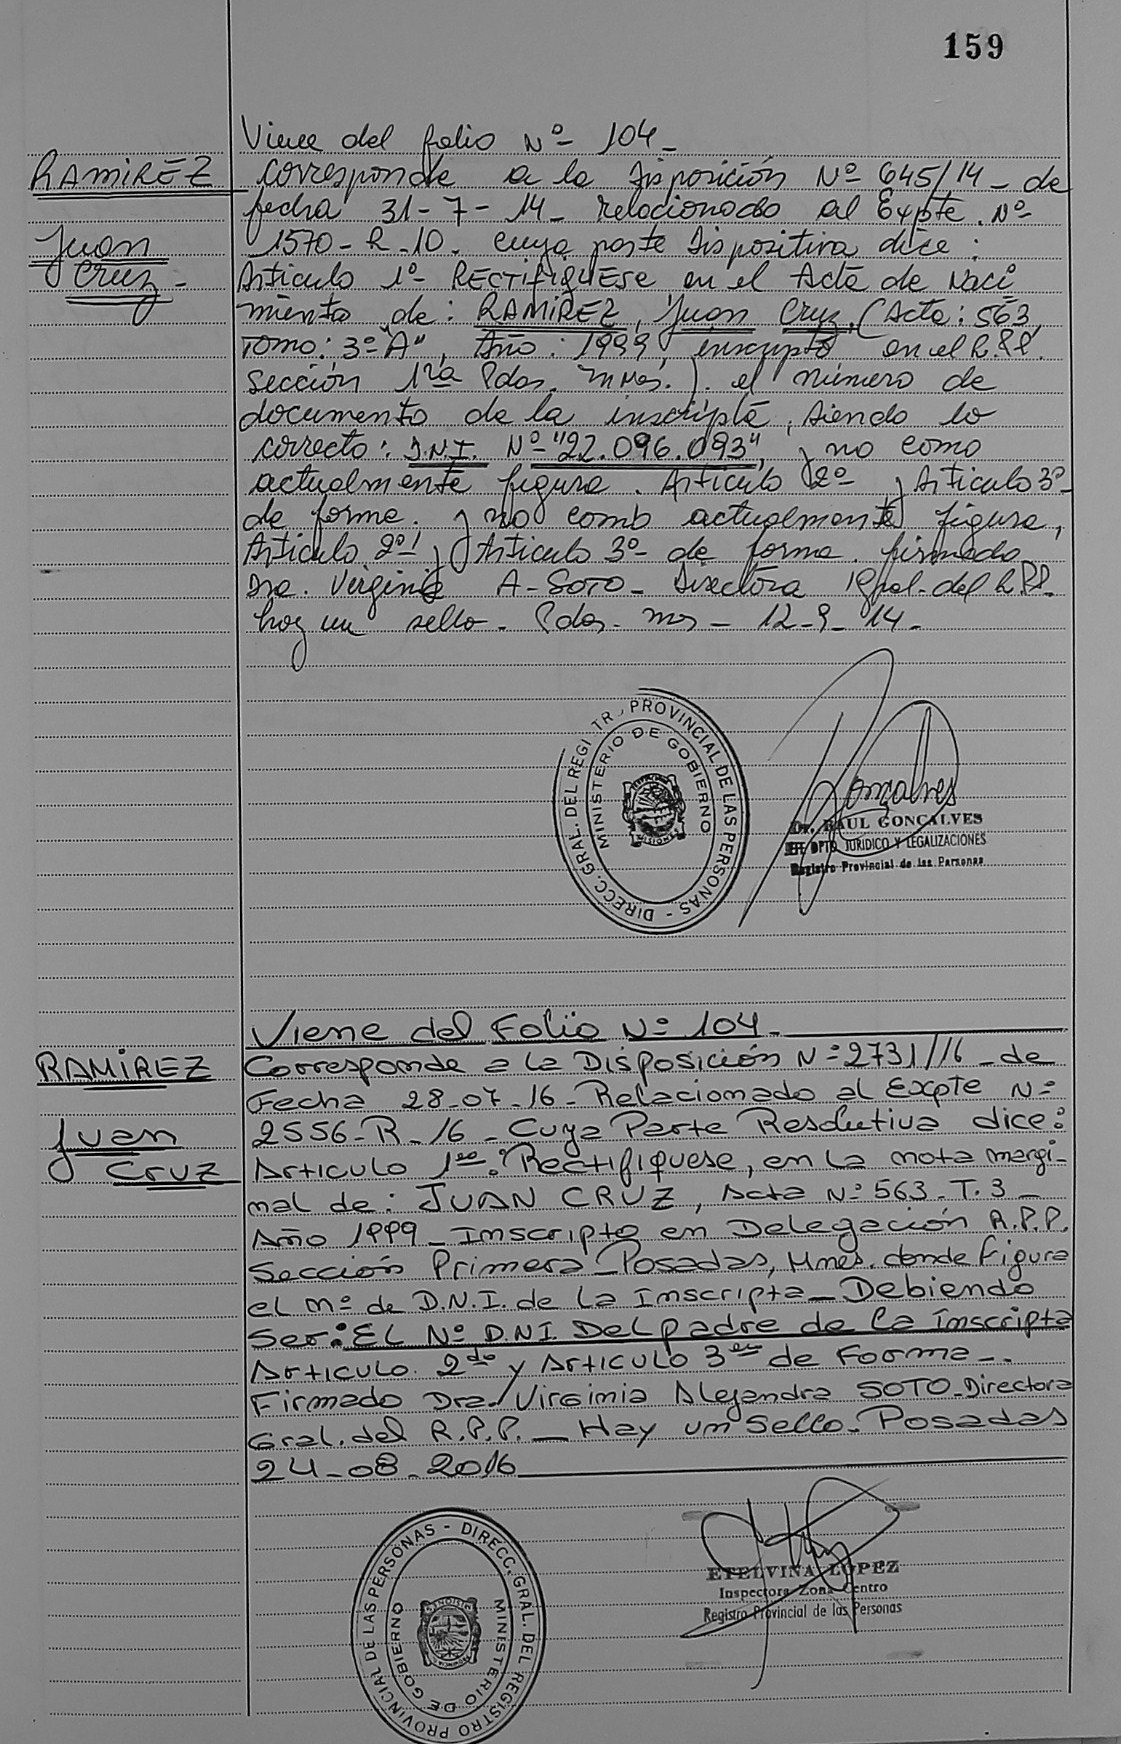 159
Viene del folio Nº 104-
RAMIREZ
Juan
Cruz-
corresponde a la Disposición Nº 645/14 - de
fecha 31-7-14- relacionado al Expte. Nº
1570-R-10. cuya parte dispositiva dice:
Artículo 1º RECTIFIQUESE en el Acta de Naci
miento de: RAMIREZ, Juan Cruz. (Acta: 563,
Tomo: 3º "A", Año: 1999, inscripto en el R.P.P.
Sección 1ra Pdas. Mnes.). el número de
documento de la inscripta, siendo lo
correcto: D.N.I. Nº "22.096.093", y no como
actualmente figura. Artículo 2º y Artículo 3º
de forma. y no como actualmente figura,
Artículo 2º y Artículo 3º de forma. firmado
Dra. Virginia A- SOTO- Directora Gral. del R.P.P.
hay un sello- Pdas- Mns - 12-9-14-
DIRECC. GRAL. DEL REGI TR PROVINCIAL DE LAS PERSONAS -
MINISTERIO DE GOBIERNO
MISIONES
Gonçalves
Dr. RAUL GONCALVES
JEFE DPTO JURIDICO Y LEGALIZACIONES
Registro Provincial de las Personas
Viene del Folio Nº 104-
RAMIREZ
Juan
Cruz
Corresponde a la Disposición Nº 2731/16 - de
Fecha 28-07-16- Relacionado al Expte Nº
2556-R-16 - Cuya Parte Resolutiva dice:
Artículo 1ro: Rectifiquese, en la nota margi-
nal de: JUAN CRUZ, Acta Nº 563-T.3-
Año 1999- Inscripto en Delegación R.P.P.
Sección Primera- Posadas, Mnes. donde Figura
el nº de D.N.I. de la Inscripta- Debiendo
Ser: EL Nº D.N.I. Del padre de la inscripta
Artículo 2do y Artículo 3er de Forma-.
Firmado Dra. Virginia Alejandra SOTO- Directora
Gral. del R.P.P. - Hay un Sello- Posadas
24-08-2016
DIRECC. GRAL. DEL REGISTRO PROVINCIAL DE LAS PERSONAS -
MINISTERIO DE GOBIERNO
ETELVINA LOPEZ
Inspectora Zona Centro
Registro Provincial de las Personas